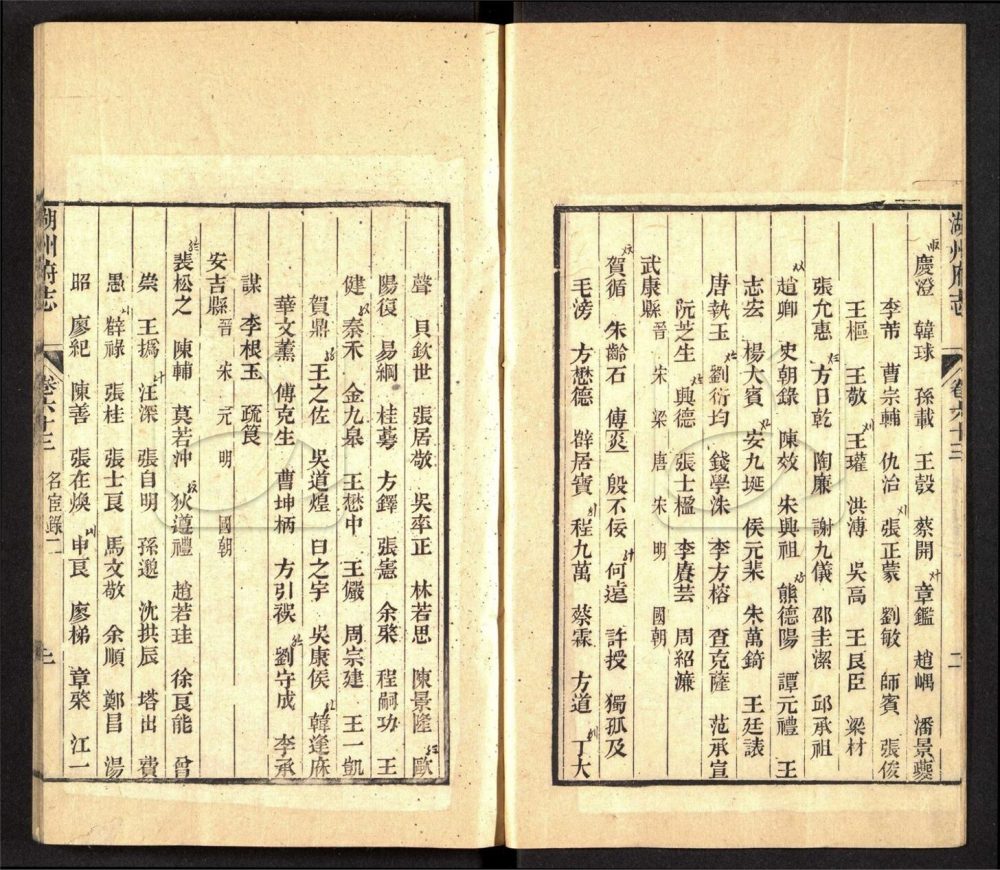 湖州府志 卷六十三 二
慶澄 韓球 孫載 王㲄 蔡開 章鑑 趙嵎 潘景夔
李芾 曹宗輔 仇治 張正蒙 劉敏 師賓 張俊
王樞 王敬 王瓘 洪溥 吳高 王艮臣 梁材
張允惠 方日乾 陶廉 謝九儀 邵圭潔 邱承祖
趙卿 史朝錄 陳效 朱興祖 熊德陽 譚元禮 王
志宏 楊大賓 安九埏 侯元棐 朱萬錡 王廷
唐執玉 劉衍均 錢學洙 李方榕 查克薩 范承宣
阮芝生 興德 張士楹 李賡芸 周紹濂
武康縣 晉 宋 梁 唐 宋 明 國朝
賀循 朱齡石 傅奕 殷不佞 何遠 許授 獨孤及
毛滂 方懋德 辥居寶 程九萬 蔡霖 方道 丁大
聲 貝欽世 張居敬 吳率正 林若思 陳景隆 歐
陽復 易綱 桂蕚 方鐸 張憲 余棨 程嗣功 王
健 秦禾 金九皋 王懋中 王儼 周宗建 王一凱
賀鼎 王之佐 吳道煌 曰之宇 吳康侯 韓逢庥
華文薰 傅克生 曹坤柄 方引禩 劉守成 李承
謀 李根玉 疏筤
安吉縣 晉 宋 元 明 國朝
裴松之 陳輔 莫若沖 狄遵禮 趙若珪 徐良能 曾
崇 王撝 汪深 張自明 孫逖 沈拱辰 塔出 費
愚 辥祿 張桂 張士良 馬文敬 余順 鄭昌 湯
昭 廖紀 陳善 張在煥 申良 廖梯 章棨 江一
湖州府志 卷六十三 名宦錄二 三